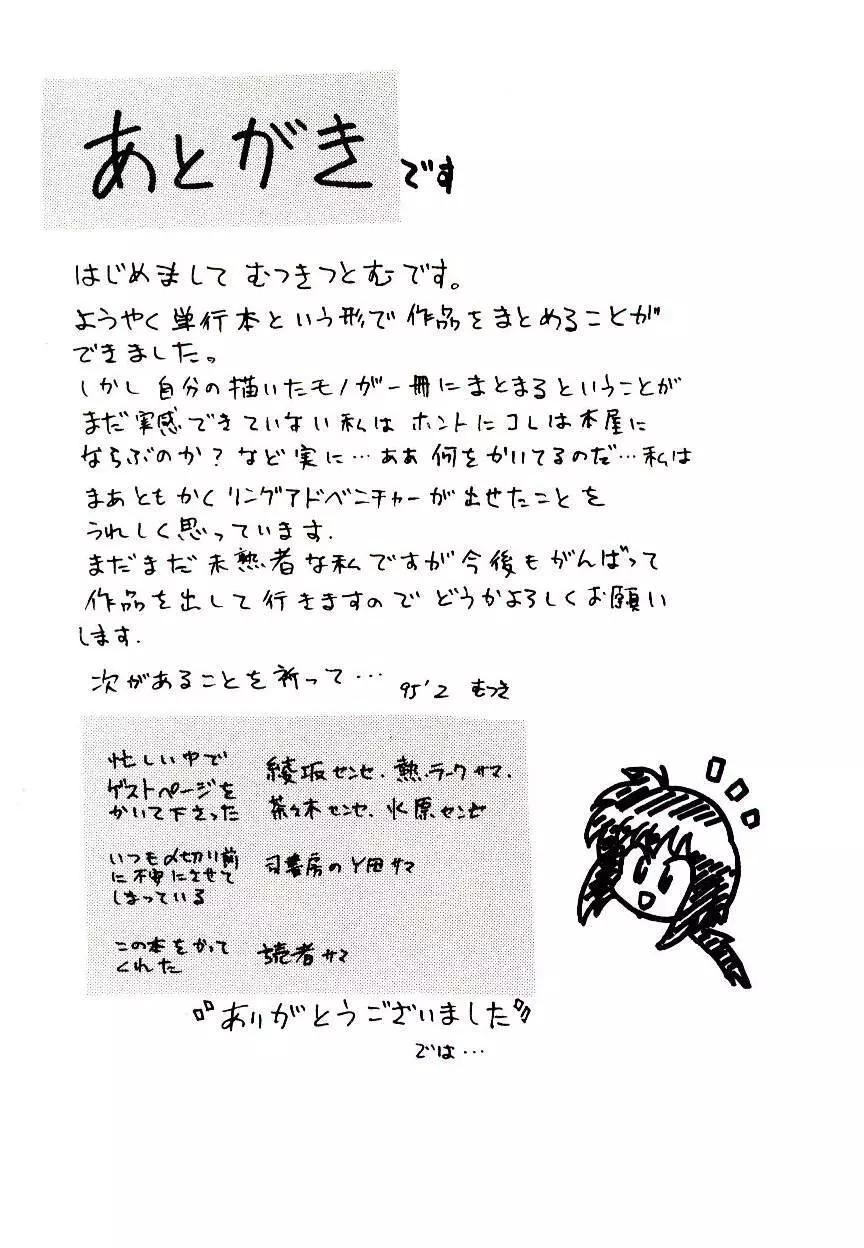 あとがきです
はじめまして むつきつとむです。
ようやく単行本という形で作品をまとめることが
できました。
しかし自分の描いたモノが一冊にまとまるということが
まだ実感できていない私は ホントにコレは本屋に
ならぶのか？など実に…ああ 何をかいてるのだ…私は
まあともかくリングアドベンチャーが出せたことを
うれしく思っています.
まだまだ未熟者な私ですが今後もがんばって
作品を出して行きますのでどうかよろしくお願い
します.
次があることを祈って… 95'2 むつき
忙しい中で
ゲストページを
かいて下さった
綾坂センセ、熱.ラークサマ.
茶々木センセ、水原センセ
いつも〆切り前
に不安にさせて
しまっている
司書房のY田サマ
この本をかって
くれた
読者サマ
ありがとうございました
では…